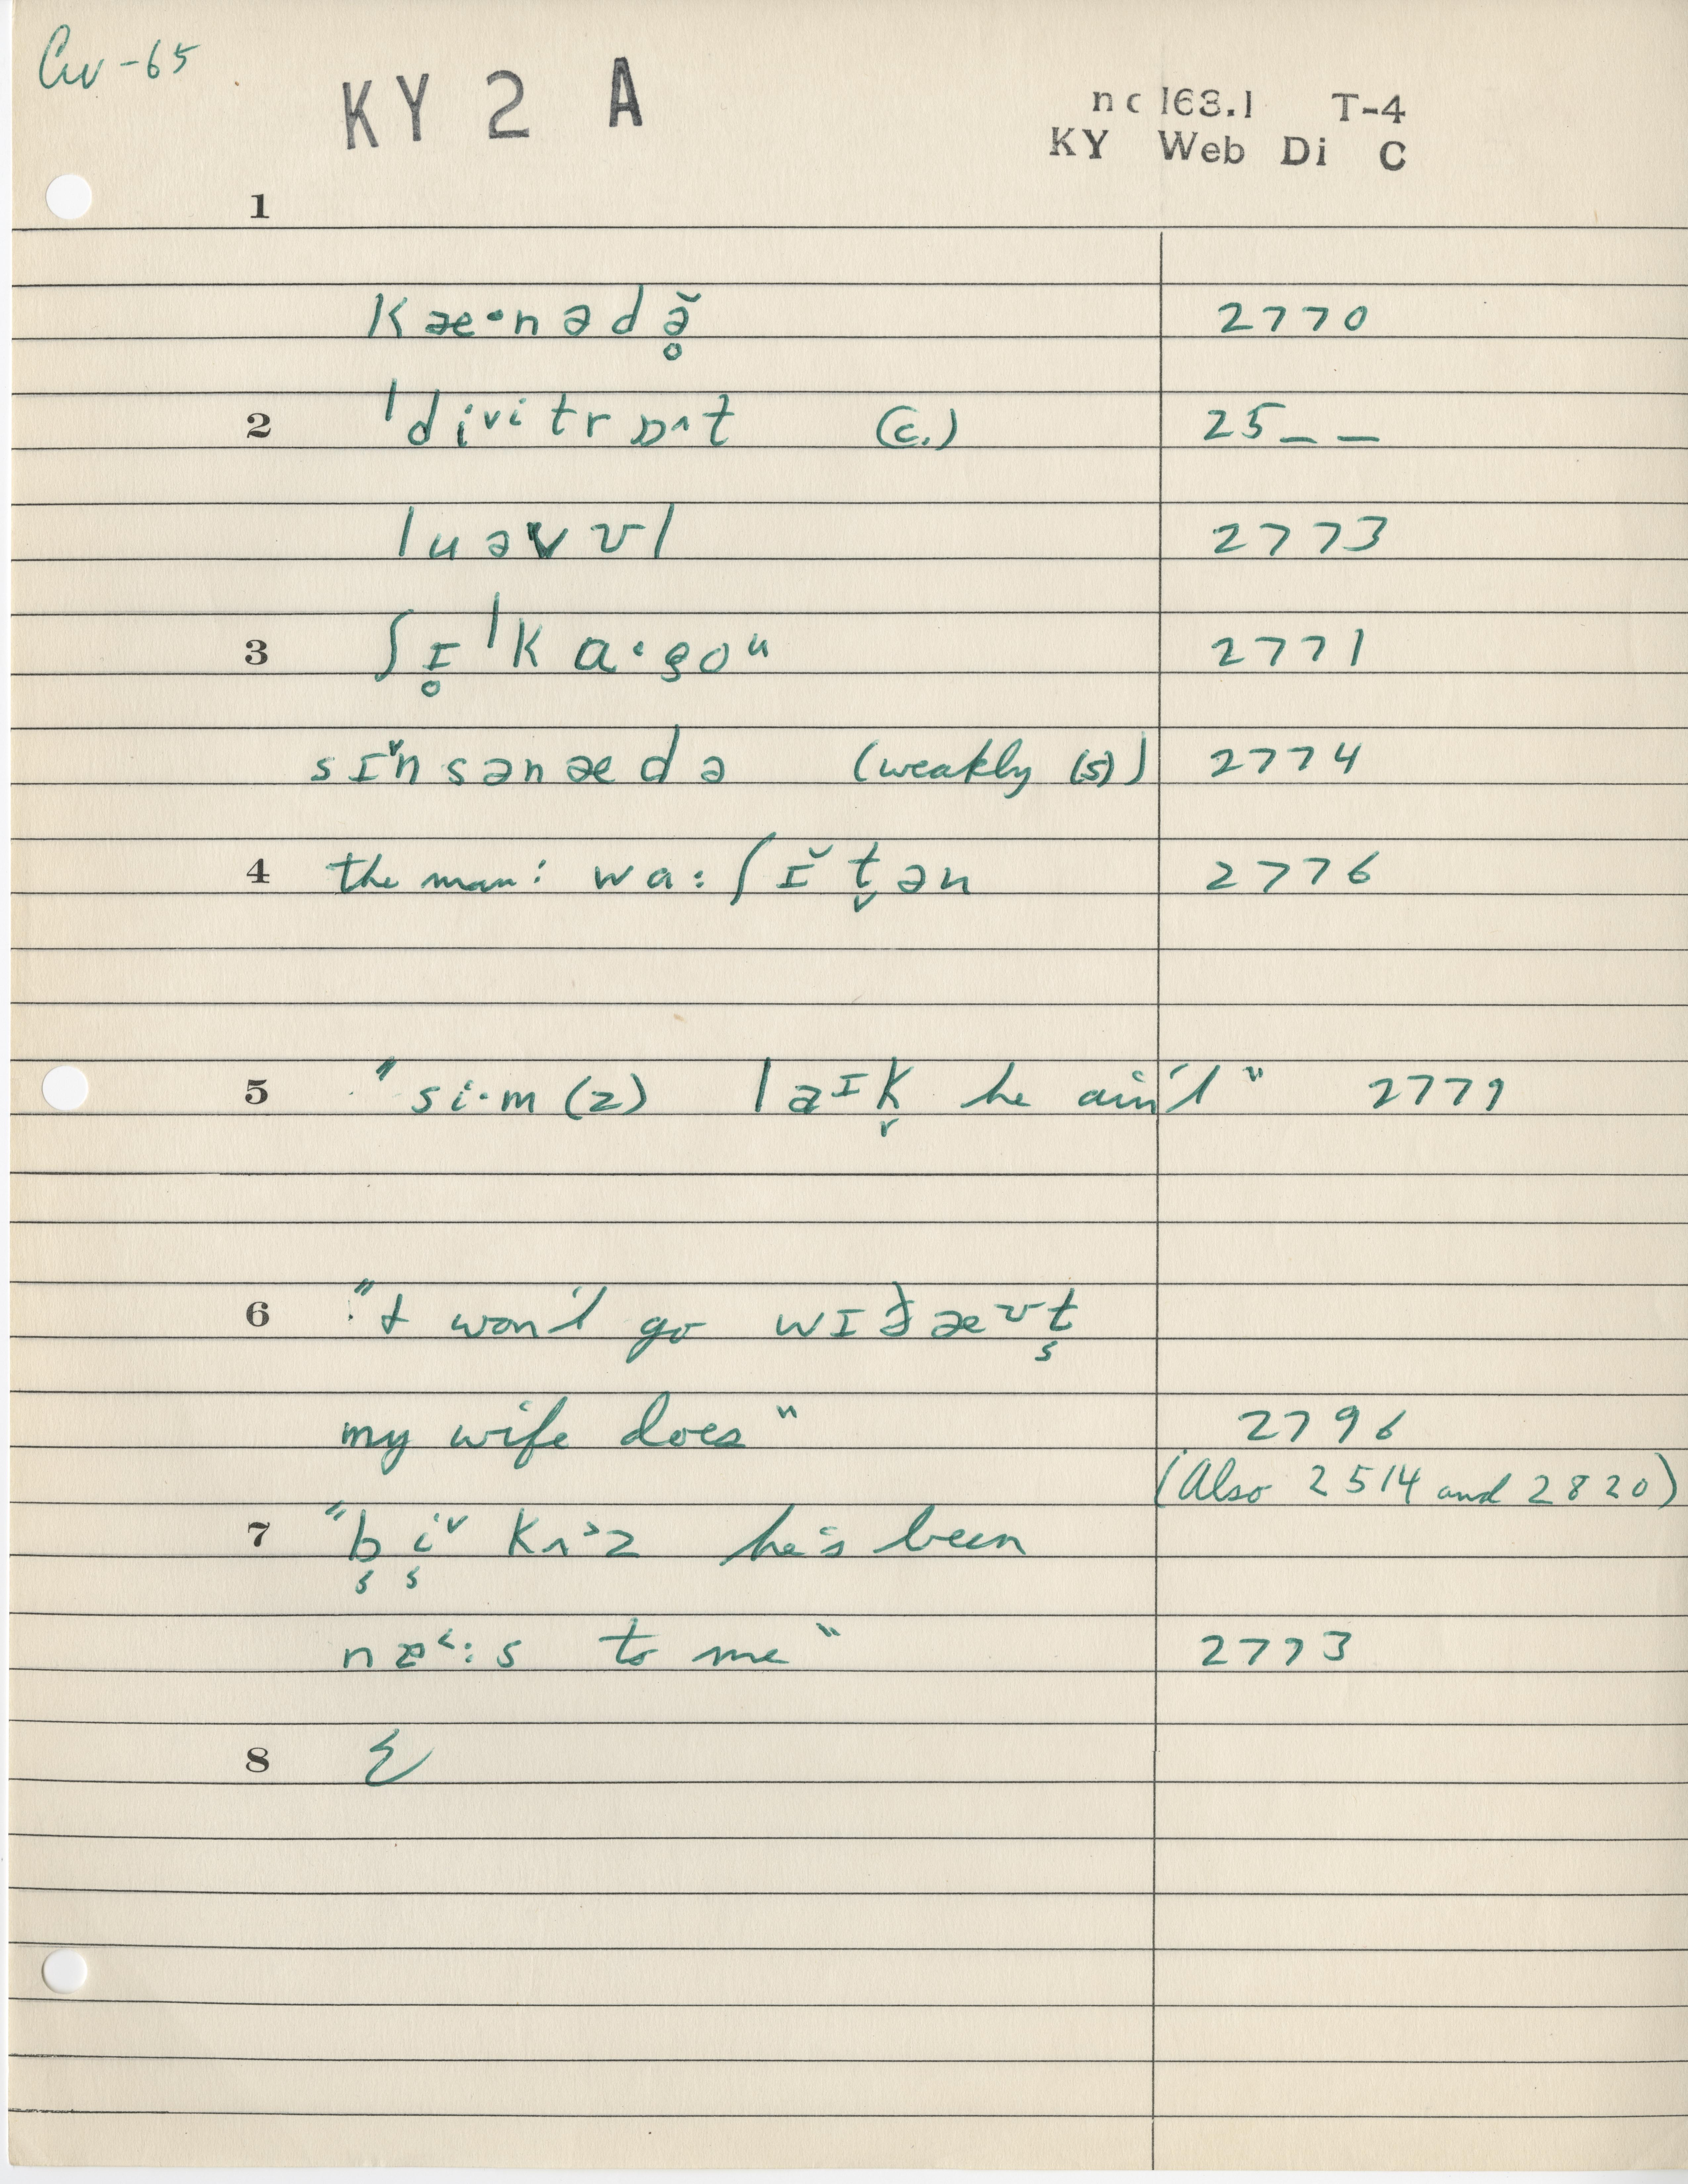 Cw-65
KY 2 A
nc 163.1 T-4
KY Web Di C
1
kæ·nədə̥̆ 2770
2 ˈdivitrɒʌt (c.) 25_ _
luəvʊl 2773
3 ʃɪ̥ˈka·goᵘ 2771
sɪ˅nsənædə (weakly (s)) 2774
4 the man: wa:ʃɪ̆t̬ən 2776
5 "si·m(z) laᶦk̬ he ain't" 2779
6 "I won't go wɪðæʊt̬
my wife does" 2796
(Also 2514 and 2820)
7 "bi˅kʌ˃z he's been
næ˂:s to me" 2773
8 Σ